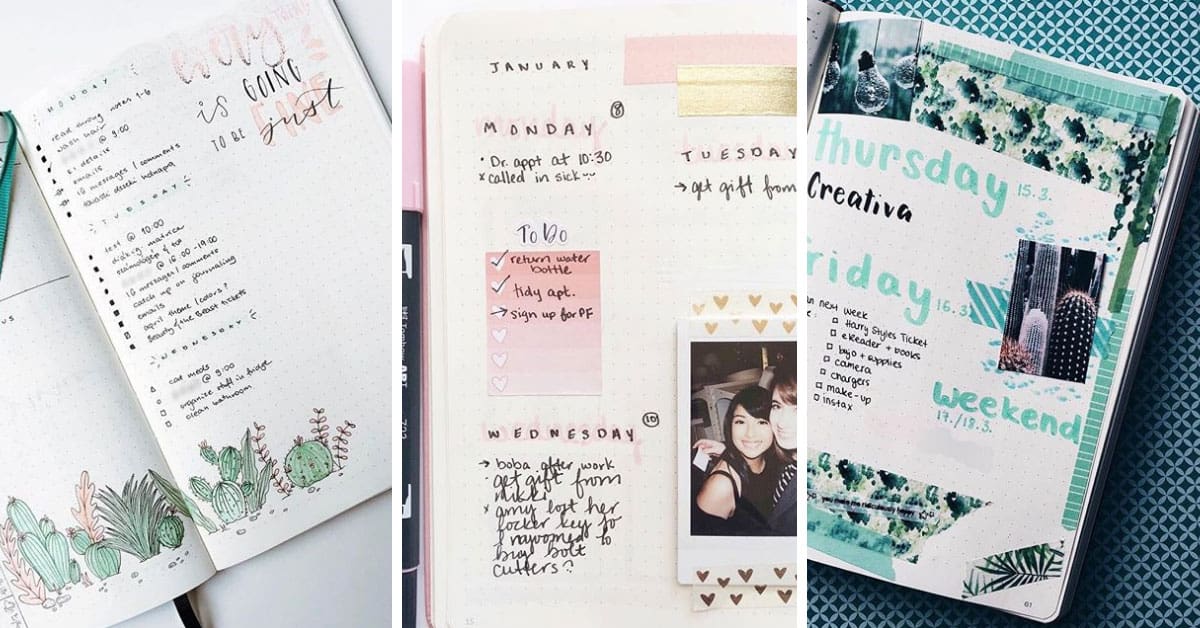 every
is GOING
TO BE
just
FINE
MONDAY
wash hair
@ 9:00
emails
16 messages / comments
TUESDAY
test @ 10:00
@ 16:00-19:00
16 messages / comments
catch up on journaling
emails
april theme / colors?
Beauty & the Beast tickets
WEDNESDAY
cat meds
@ 9:00
organize stuff in fridge
clean bathroom
JANUARY
8
MONDAY
• Dr. appt at 10:30
x called in sick
To Do
return water
bottle
tidy apt.
sign up for PF
10
WEDNESDAY
→ boba after work
• get gift from
nikki
x amy lost her
locker key so
I rayoomed to
buy bolt
cutters?
15
TUESDAY
→ get gift from
Thursday 15.3.
Creativa
Friday 16.3.
next week
Harry Styles Ticket
eReader + books
bujo + supplies
camera
chargers
make-up
instax
weekend
17./18.3.
61